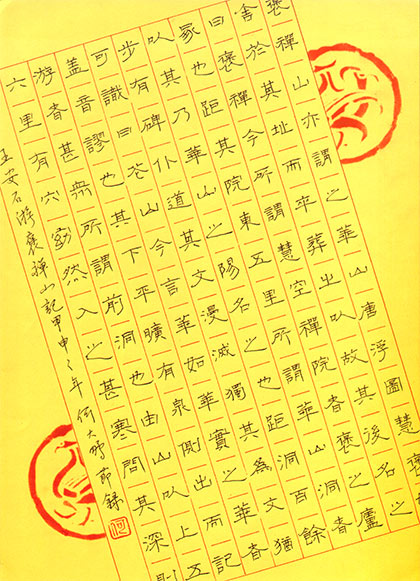 褒禪山亦謂之華山唐浮圖慧褒
舍於其址而卒葬出以故其後名之
曰褒禪今所謂慧空禪院者褒之廬
冢也距其院東五里所謂華山洞者
以其乃華山之陽名之也距洞百餘
步有碑仆道其文漫滅獨其為文猶
可識曰花山今言華如華實之華者
蓋音謬也其下平曠有泉側出而記
游者甚眾所謂前洞也由山以上五
六里有穴窈然入之甚寒問其深則
王安石游褒禪山記甲申之年何大節錄